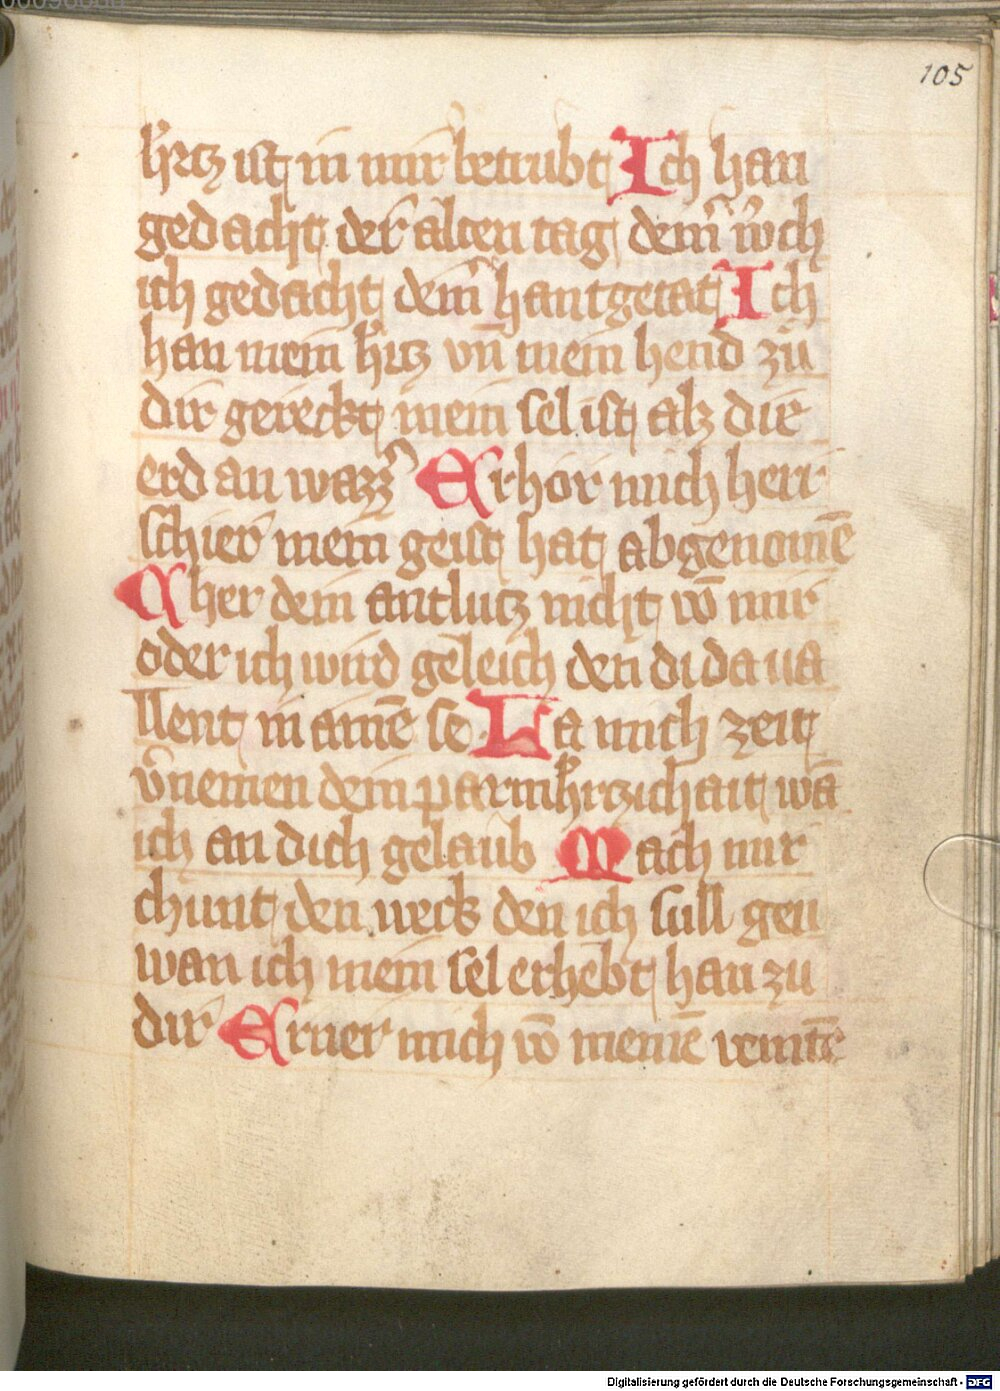 105
h̾rtz ist in mir betrubt Ich han
gedacht der alten tag dein̾ w̾ch
ich gedacht dein̾ hantgetat Ich
han mein h̾rtz vn̄ mein hend zů
dir gereckt mein sel ist alz die
erd an wazz̾ Erhor mich herr
schier mein geist hat abgenomē
Cher dein antlutz nicht vō mir
oder ich wird geleich den di da va
llent in ainē se La mich zeit
v̾nemen dein parmh̾rtzichait wā
ich an dich gelaub Mach mir
chunt den weck den ich sull gen
wan ich mein sel erhebt han zu
dir Erner mich vō meinē veintē
Digitalisierung gefördert durch die Deutsche Forschungsgemeinschaft - DFG